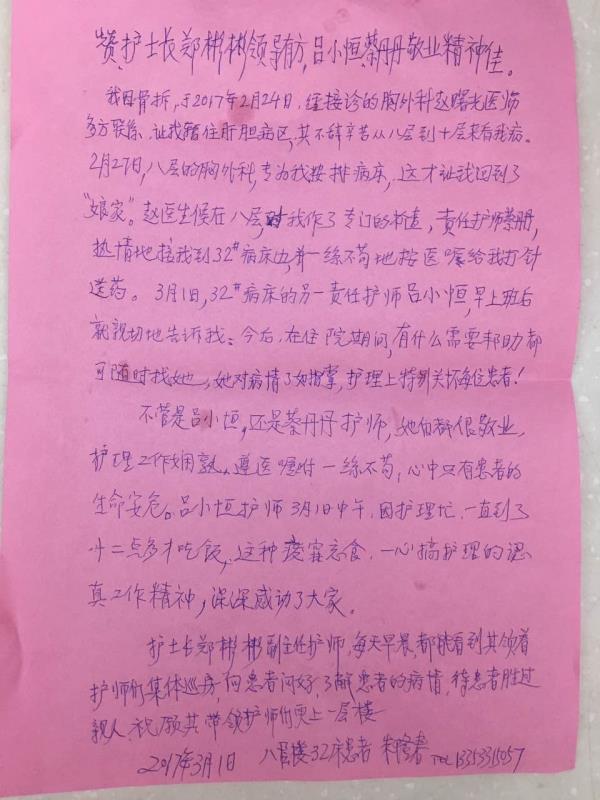 赞护士长郑彬彬领导有方,吕小恒、蔡丹丹敬业精神佳。
我因骨折,于2017年2月24日,经接诊的胸外科赵曙光医师
多方联系,让我籍住肝胆病区,其不辞辛苦从八层到十层来看我病。
2月27日,八层的胸外科,专为我按排病床,这才让我回到了
“娘家”。赵医生候在八层,对我作了专门的检查,责任护师蔡丹,
热情地接我到32#病床边,并一丝不苟地按医嘱给我打针
送药。3月1日,32#病床的另一责任护师吕小恒,早上班后
就亲切地告诉我:今后,在住院期间,有什么需要帮助都
可随时找她,她对病情了如指掌,护理上特别关怀每位患者!
不管是吕小恒,还是蔡丹丹护师,她们都很敬业,
护理工作娴熟,遵医嘱付一丝不苟,心中只有患者的
生命安危。吕小恒护师3月1日中午,因护理忙,一直到了
十二点多才吃饭,这种废寝忘食,一心搞护理的认
真工作精神,深深感动了大家。
护士长郑彬彬副主任护师,每天早晨,都能看到其领着
护师们集体巡房,向患者问好,了解患者的病情,待患者胜过
亲人,祝愿其带领护师们更上一层楼
2017年3月1日 八层楼32床患者 朱 TEL